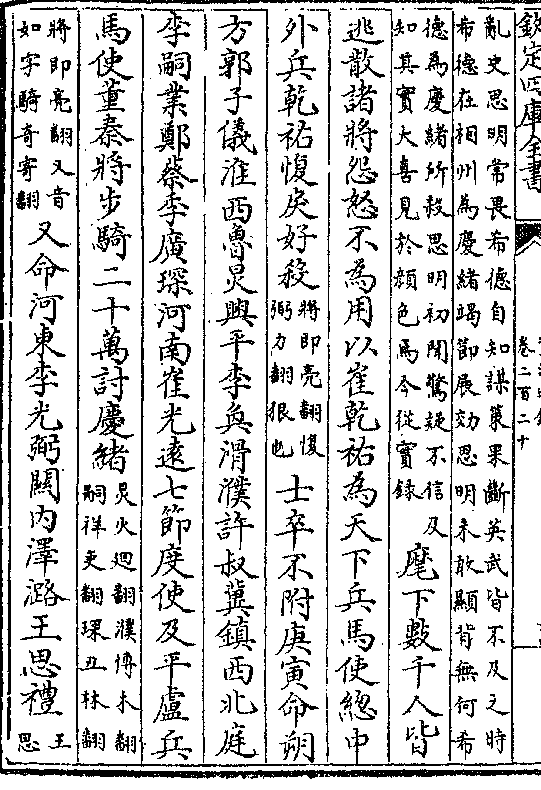 欽定四庫全書
卷二百二十
亂史思明常畏希德自知謀策果斷英武皆不及之時
希德在相州為慶緒竭節展効思明未敢顯背無何希
德為慶緒所殺思明初聞驚疑不信及
知其實大喜見於顔色焉今從實錄
麾下數千人皆
逃散諸將怨怒不為用以崔乾祐為天下兵馬使總中
外兵乾祐愎戾好殺
將即亮翻愎
弼力翻狠也
士卒不附庚寅命朔
方郭子儀淮西魯炅興平李奐滑濮許叔冀鎮西北庭
李嗣業鄭蔡李廣琛河南崔光遠七節度使及平盧兵
馬使董秦將步騎二十萬討慶緒
炅火迥翻濮博木翻
嗣祥吏翻琛丑林翻
將即亮翻又音
如字騎奇寄翻
又命河東李光弼關内澤潞王思禮
王
思